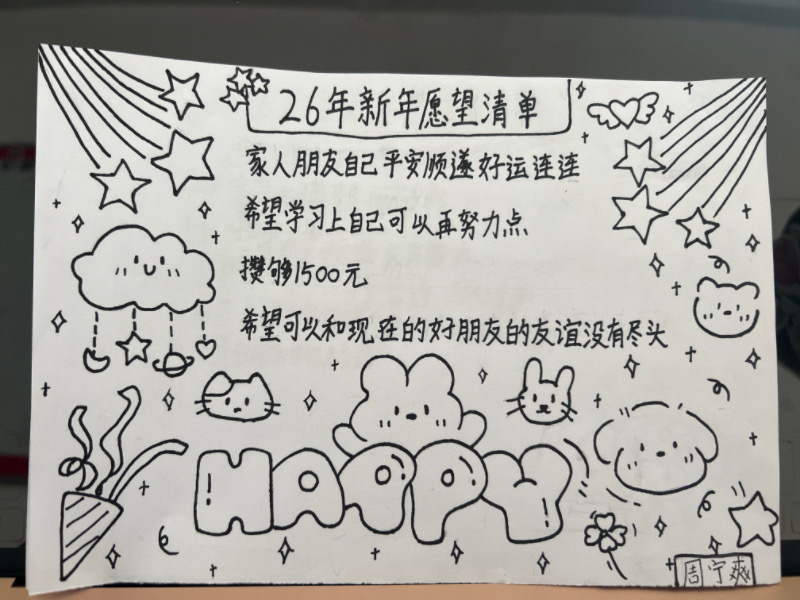 26年新年愿望清单
家人朋友自己平安顺遂好运连连
希望学习上自己可以再努力点
攒够1500元
希望可以和现在的好朋友的友谊没有尽头
HAPPY
周宁爽